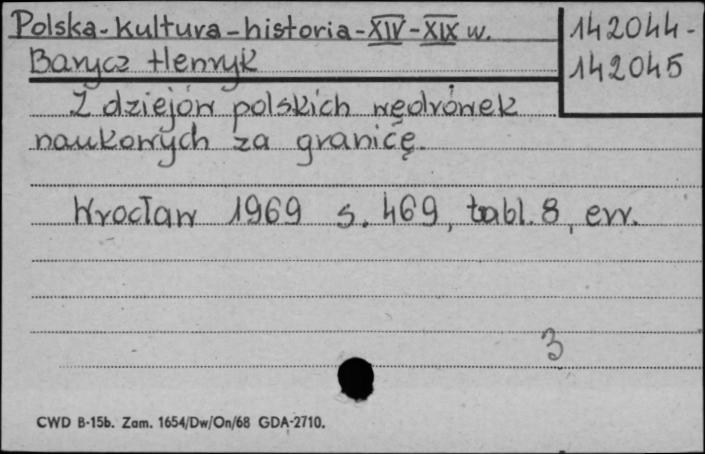 Polska-kultura-historia-XIV-XIX w.
142044-
142045
Barycz Henryk
Z dziejów polskich wędrówek
naukowych za granicę.
Wrocław 1969 s. 469, tabl. 8, err.
3
CWD B-15b. Zam. 1654/Dw/On/68 GDA-2710.